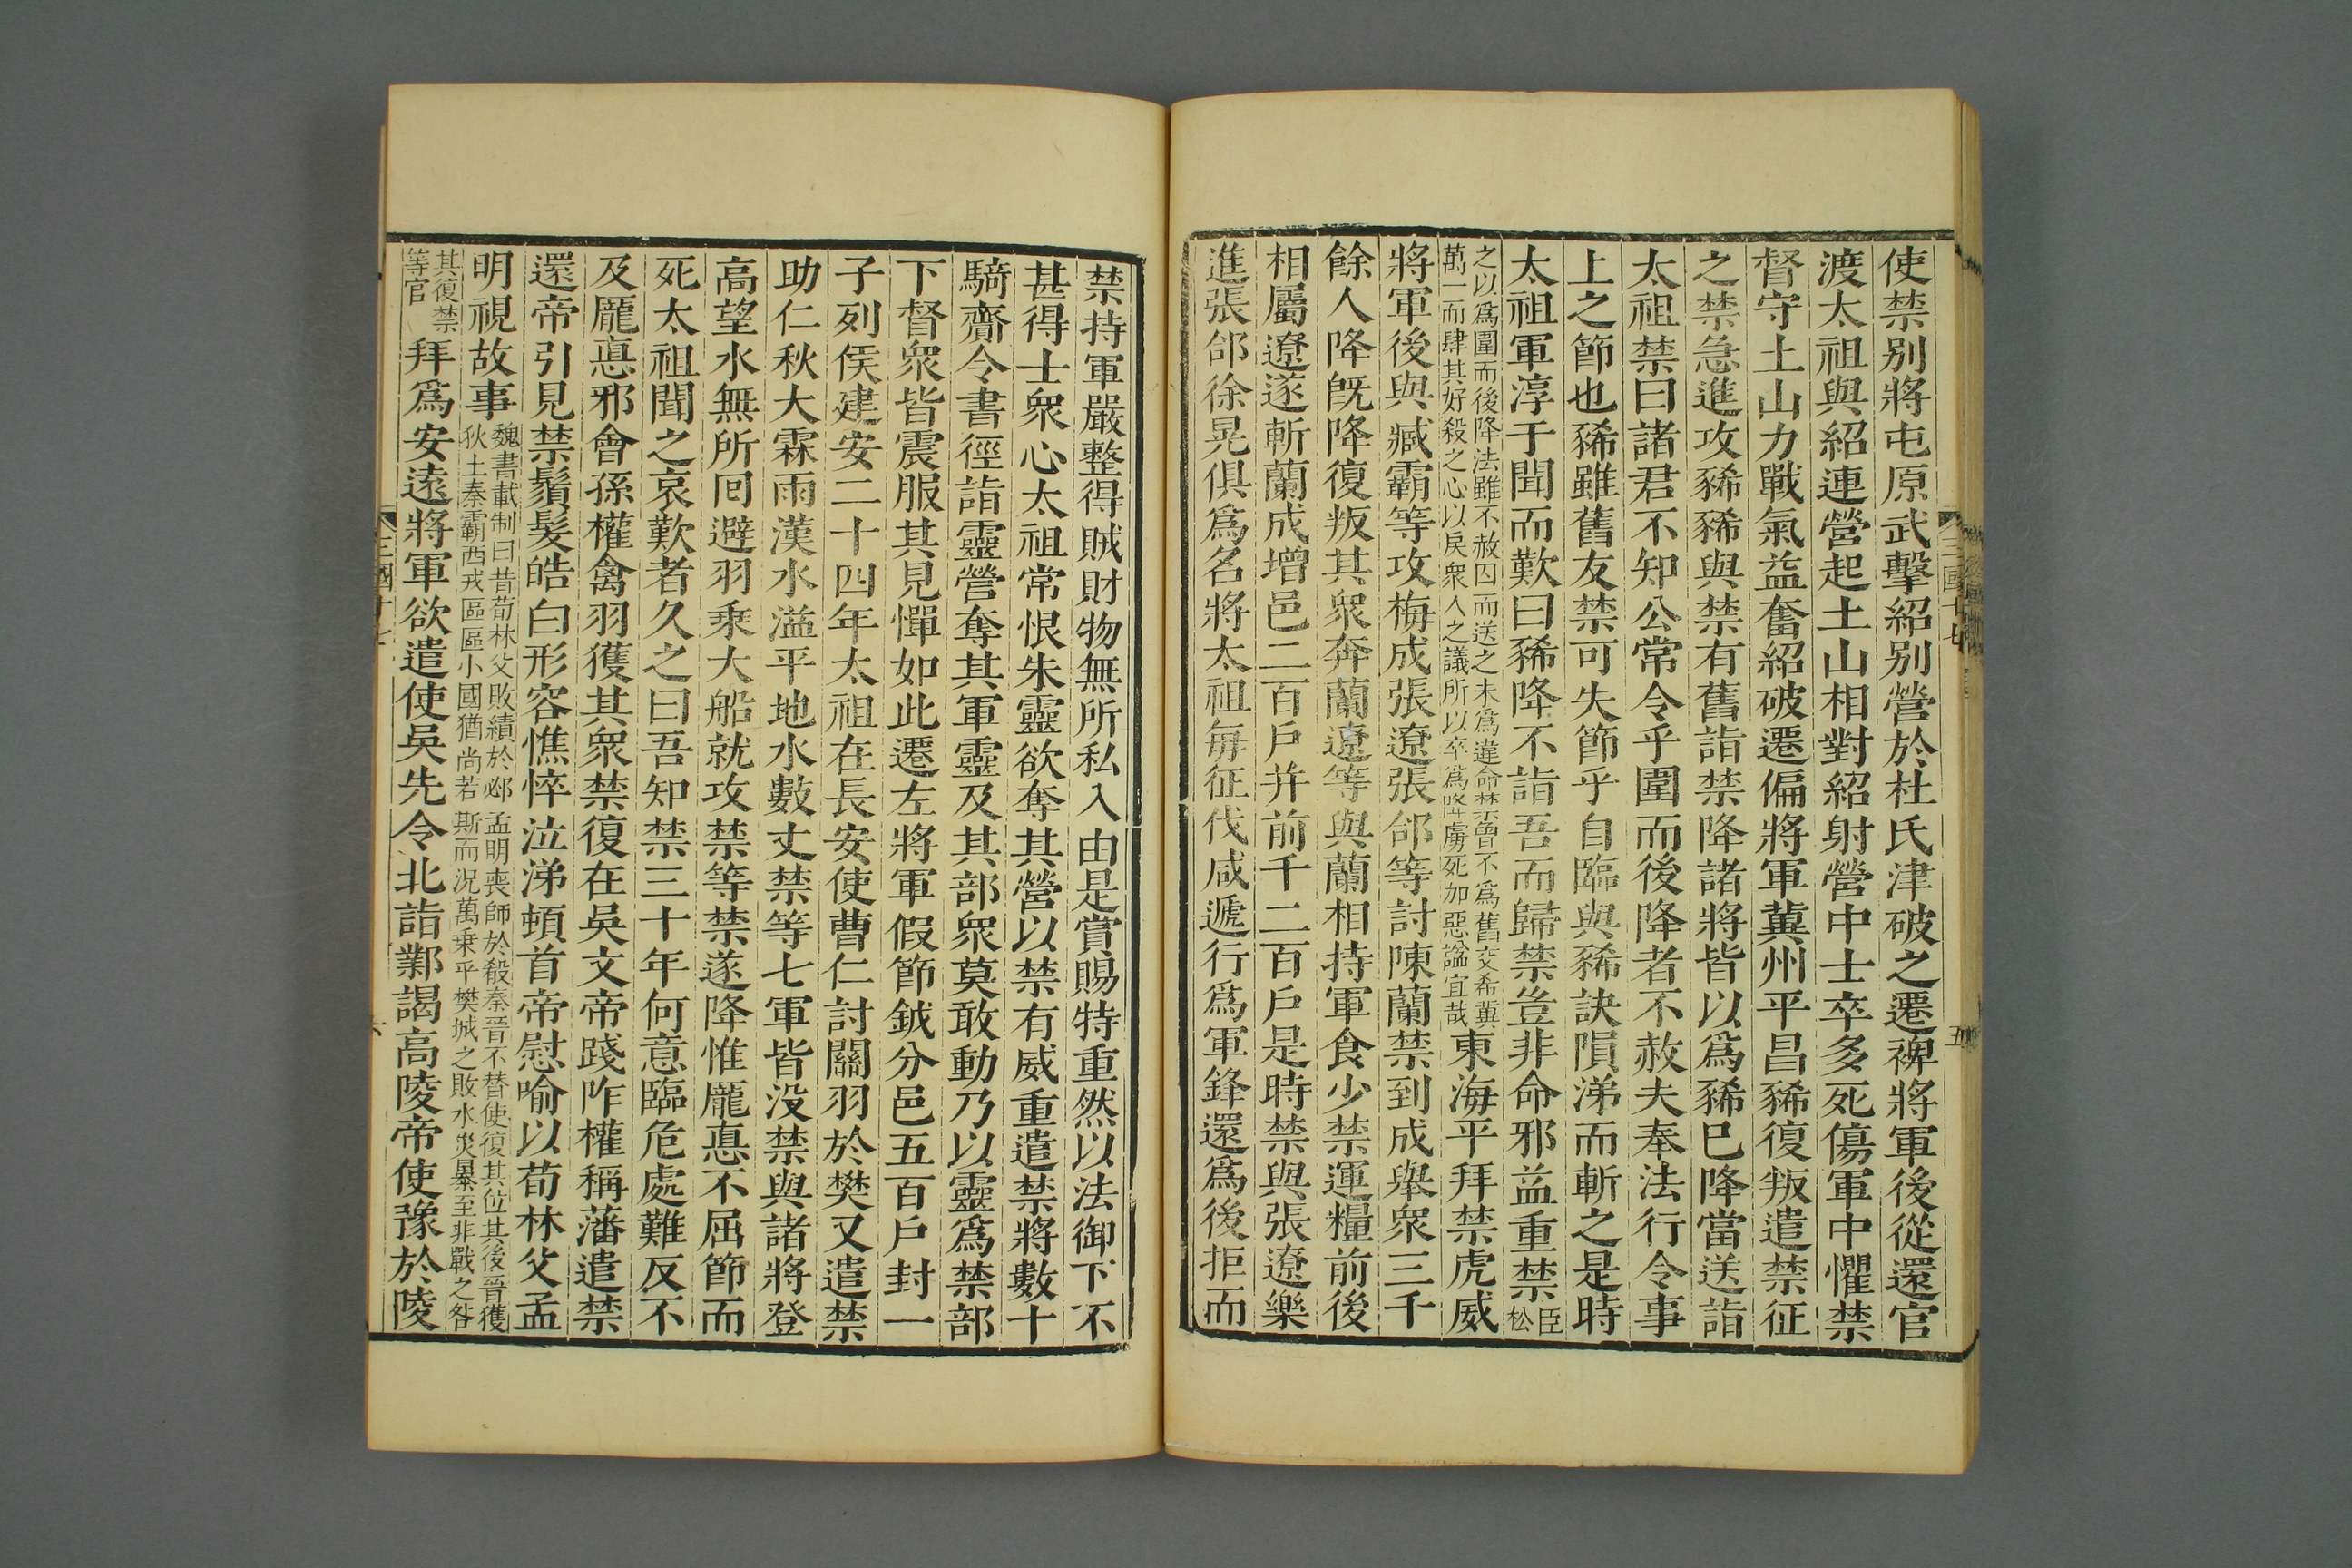 使禁别將屯原武擊紹别營於杜氏津破之遷裨將軍後從還官
渡太祖與紹連營起土山相對紹射營中士卒多死傷軍中懼禁
督守土山力戰氣益奮紹破遷偏將軍冀州平昌豨復叛遣禁征
之禁急進攻豨豨與禁有舊詣禁降諸將皆以爲豨巳降當送詣
太祖禁曰諸君不知公常令乎圍而後降者不赦夫奉法行令事
上之節也豨雖舊友禁可失節乎自臨與豨訣隕涕而斬之是時
太祖軍淳于聞而歎曰豨降不詣吾而歸禁豈非命邪益重禁臣松
之以爲圍而後降法雖不赦囚而送之未爲違命禁曾不爲舊交希冀
萬一而肆其好殺之心以戾衆人之議所以卒爲降虜死加惡謚宜哉
東海平拜禁虎威
將軍後與臧霸等攻梅成張遼張郃等討陳蘭禁到成舉衆三千
餘人降旣降復叛其衆奔蘭遼等與蘭相持軍食少禁運糧前後
相屬遼遂斬蘭成增邑二百戶并前千二百戶是時禁與張遼樂
進張郃徐晃俱爲名將太祖每征伐咸遞行爲軍鋒還爲後拒而
三國十七
五
禁持軍嚴整得賊財物無所私入由是賞賜特重然以法御下不
甚得士衆心太祖常恨朱靈欲奪其營以禁有威重遣禁將數十
騎齎令書徑詣靈營奪其軍靈及其部衆莫敢動乃以靈爲禁部
下督衆皆震服其見憚如此遷左將軍假節鉞分邑五百戶封一
子列侯建安二十四年太祖在長安使曹仁討關羽於樊又遣禁
助仁秋大霖雨漢水溢平地水數丈禁等七軍皆没禁與諸將登
高望水無所回避羽乘大船就攻禁等禁遂降惟龐悳不屈節而
死太祖聞之哀歎者久之曰吾知禁三十年何意臨危處難反不
及龐悳邪會孫權禽羽獲其衆禁復在吳文帝踐阼權稱藩遣禁
還帝引見禁鬚髮皓白形容憔悴泣涕頓首帝慰喻以荀林父孟
明視故事
魏書載制曰昔荀林父敗績於邲孟明喪師於殽秦晉不替使復其位其後晉獲
狄土秦霸西戎區區小國猶尚若斯而况萬乗乎樊城之敗水災暴至非戰之咎
其復禁
等官
拜爲安遠將軍欲遣使吳先令北詣鄴謁高陵帝使豫於陵
三國十七
六